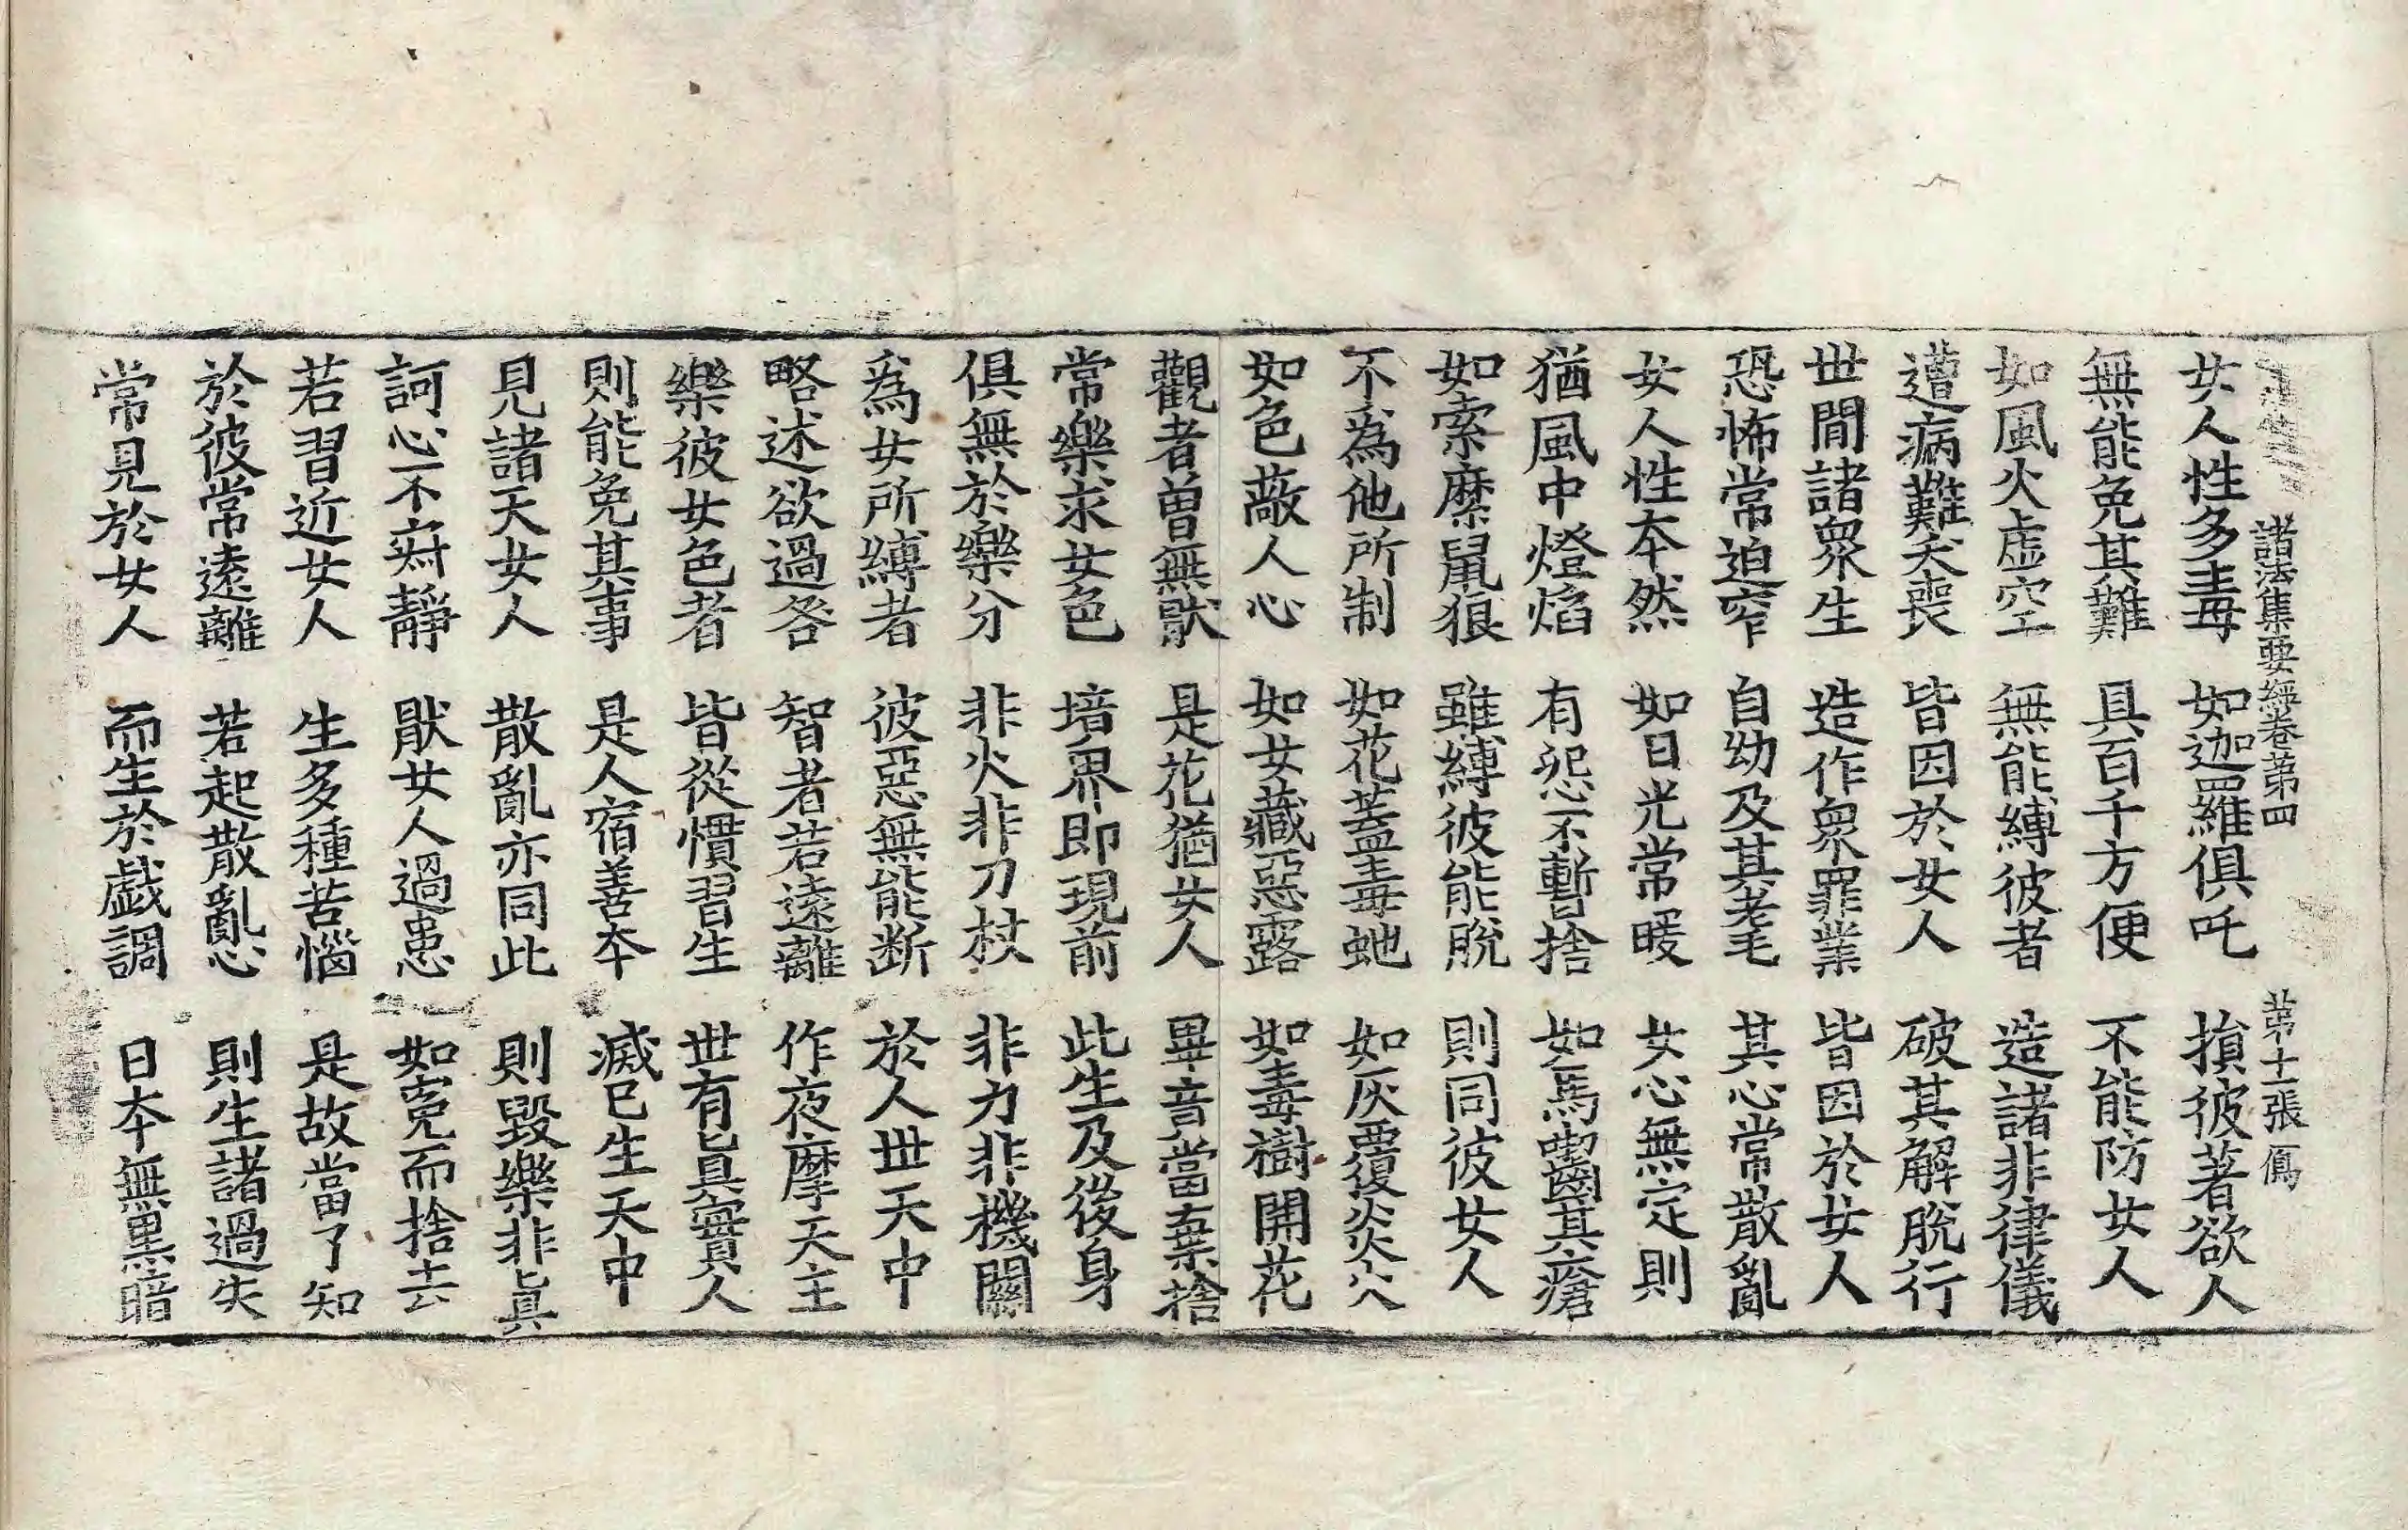 諸法集要經卷苐四 苐十一張 鳫
女人性多毒 如迦羅俱吒 損彼著欲人
無能免其難 具百千方便 不能防女人
如風火虛空 無能縛彼者 造諸非律儀
遭病難夭喪 皆因於女人 破其解脫行
世間諸衆生 造作衆罪業 皆因於女人
恐怖常迫窄 自幼及其老 其心常散亂
女人性本然 如日光常暖 女心無定則
猶風中燈焰 有怨不暫捨 如馬齧其瘡
如索縻鼠狼 雖縛彼能脫 則同彼女人
不爲他所制 如花蓋毒虵 如灰覆炎火
如色蔽人心 如女藏惡露 如毒樹開花
觀者曾無猒 是花猶女人 畢竟當棄捨
常樂求女色 境界即現前 此生及後身
俱無於樂分 非火非刀杖 非力非機關
爲女所縛者 彼惡無能断 於人世天中
略述欲過咎 智者若遠離 作夜摩天主
樂彼女色者 皆從慣習生 世有眞實人
則能免其事 是人宿善本 滅已生天中
見諸天女人 散亂亦同此 則毀樂非眞
訶心不寂靜 猒女人過患 如寃而捨去
若習近女人 生多種苦惱 是故當了知
於彼常遠離 若起散亂心 則生諸過失
常見於女人 而生於戱調 日本無黑暗